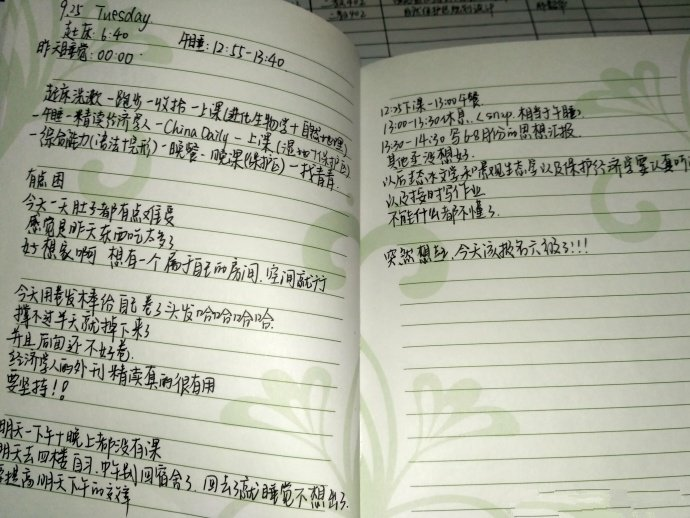 9.25 Tuesday
起床: 6:40
昨天睡觉: 00:00
午睡: 12:55-13:40
起床洗漱-跑步-收拾-上课(进化生物学+自然地理)
-午睡-精读经济学人-China Daily-上课(湿地
-综合能力(语法+完形)-晚餐-晚课(保护区)-找青青.
有点困
今天一天肚子都有点难受
感觉是昨天东西吃太多了
好想家啊 想有一个属于自己的房间.空间就行
今天用卷发棒给自己卷了头发哈哈哈哈.
撑不过半天就掉下来了
并且后面还不好卷.
经济学人的外刊精读真的很有用
要坚持!!
明天一下午+晚上都没有课
明天去四楼自习.中午别回宿舍了.回去了就睡觉不想出了.
提高明天下午的效率
12:25下课-13:00午餐
13:00-13:30休息.(snap.相当于午睡)
13:30-14:30 写6-8月份的思想汇报.
其他还没想好.
以后态水文学和景观生态学以及保护经济学要认真听
以及按时写作业
不能什么都不懂了.
突然想起.今天该报名六级了!!!